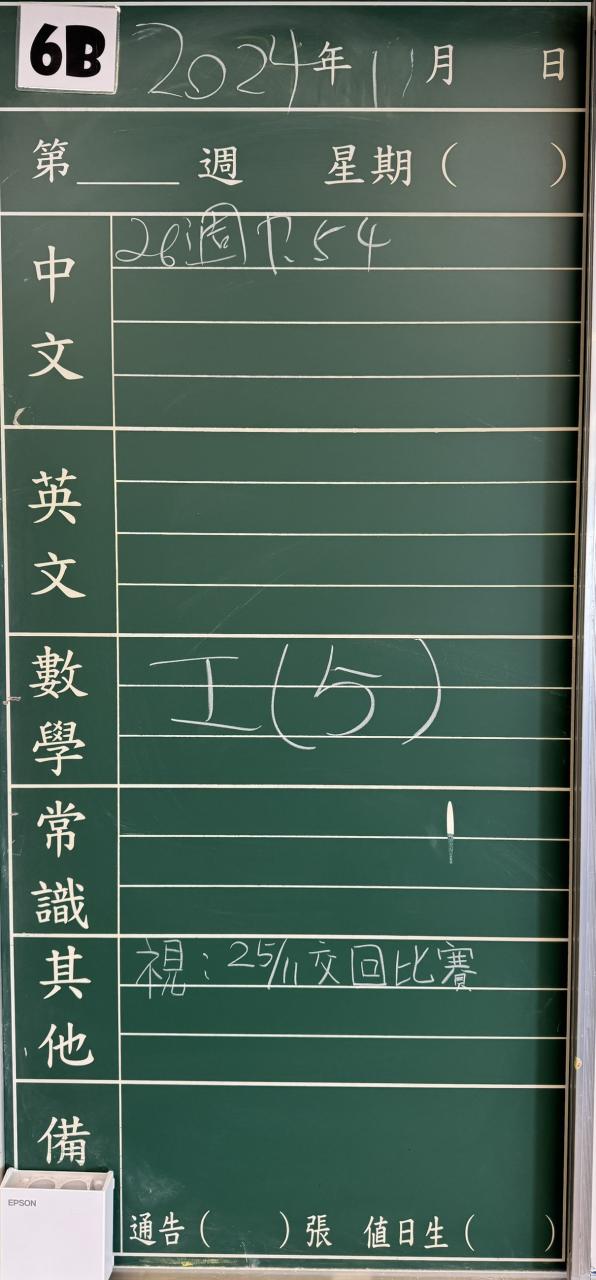 6B 2024年11月 日
第____週 星期( )
中文 26週 P.54
英文
數學 工(5)
常識
其他 視:25/11交回比賽
備
EPSON
通告( )張 值日生( )